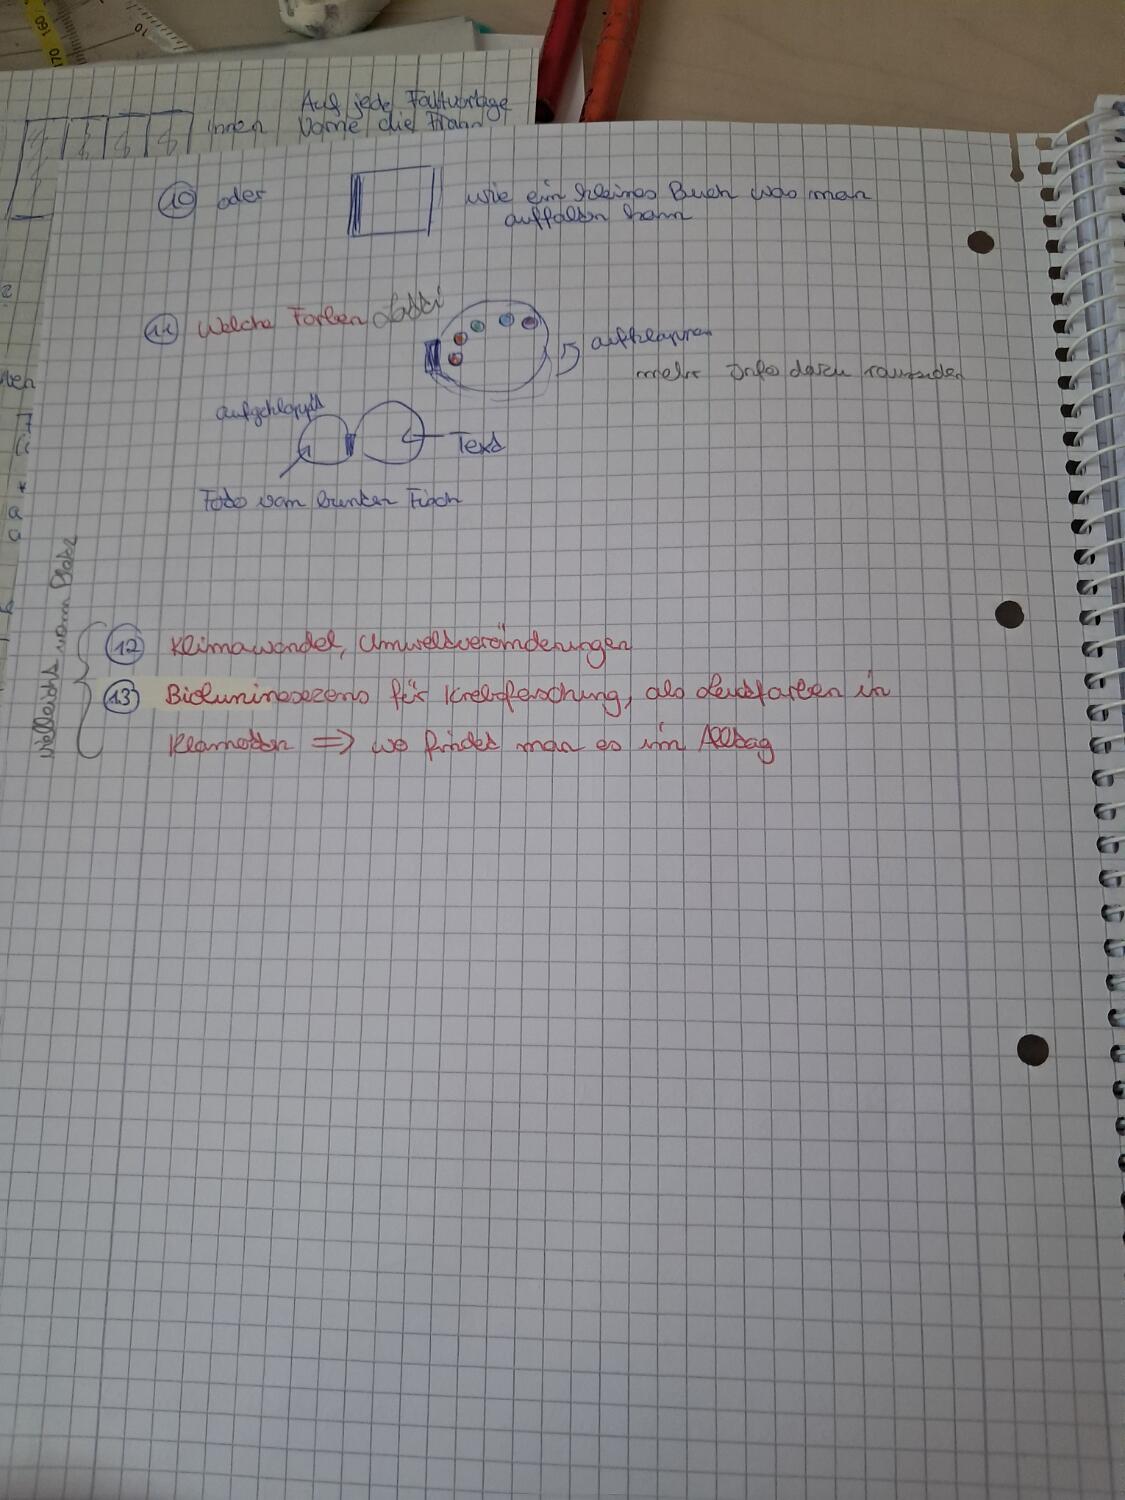 Auf jede Faltvorlage
innen vorne die Fragen
10 oder wie ein kleines Buch was man
auffalten kann
11 Welche Farben
aufklappen
mehr Info durch
aufgeklappt
Text
Foto vom bunten Fisch
vielleicht wenn Platz
12 Klimawandel, Umweltveränderungen
13 Biolumineszens für Krebsforschung, als Leuchtfarben in
Klamotten => wo findet man es im Alltag
160
170
10